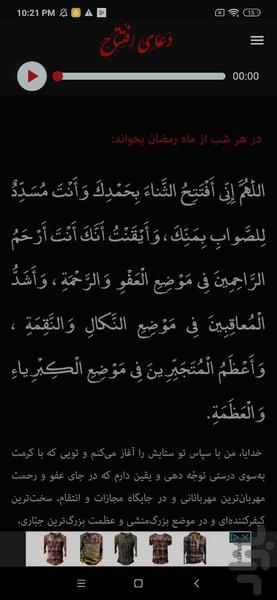 10:21 PM
15
دعای افتتاح
00:00
در هر شب از ماه رمضان بخواند:
اللّٰهُمَّ إِنِّى أَفْتَتِحُ الثَّناءَ بِحَمْدِكَ وَأَنْتَ مُسَدِّدٌ
لِلصَّوابِ بِمَنِّكَ، وَأَيْقَنْتُ أَنَّكَ أَنْتَ أَرْحَمُ
الرَّاحِمِينَ فِى مَوْضِعِ الْعَفْوِ وَالرَّحْمَةِ، وَأَشَدُّ
الْمُعاقِبِينَ فِى مَوْضِعِ النَّكالِ وَالنَّقِمَةِ،
وَأَعْظَمُ الْمُتَجَبِّرِينَ فِى مَوْضِعِ الْكِبْرِياءِ
وَالْعَظَمَةِ.
خدایا، من با سپاس تو ستایش را آغاز می‌کنم و تویی که با کرمت
به‌سوی درستی توجّه دهی و یقین دارم که در جای عفو و رحمت
مهربان‌ترین مهربانانی و در جایگاه مجازات و انتقام، سخت‌ترین
کیفرکننده‌ای و در موضع بزرگ‌منشی و عظمت بزرگ‌ترین جبّاری،
بازار